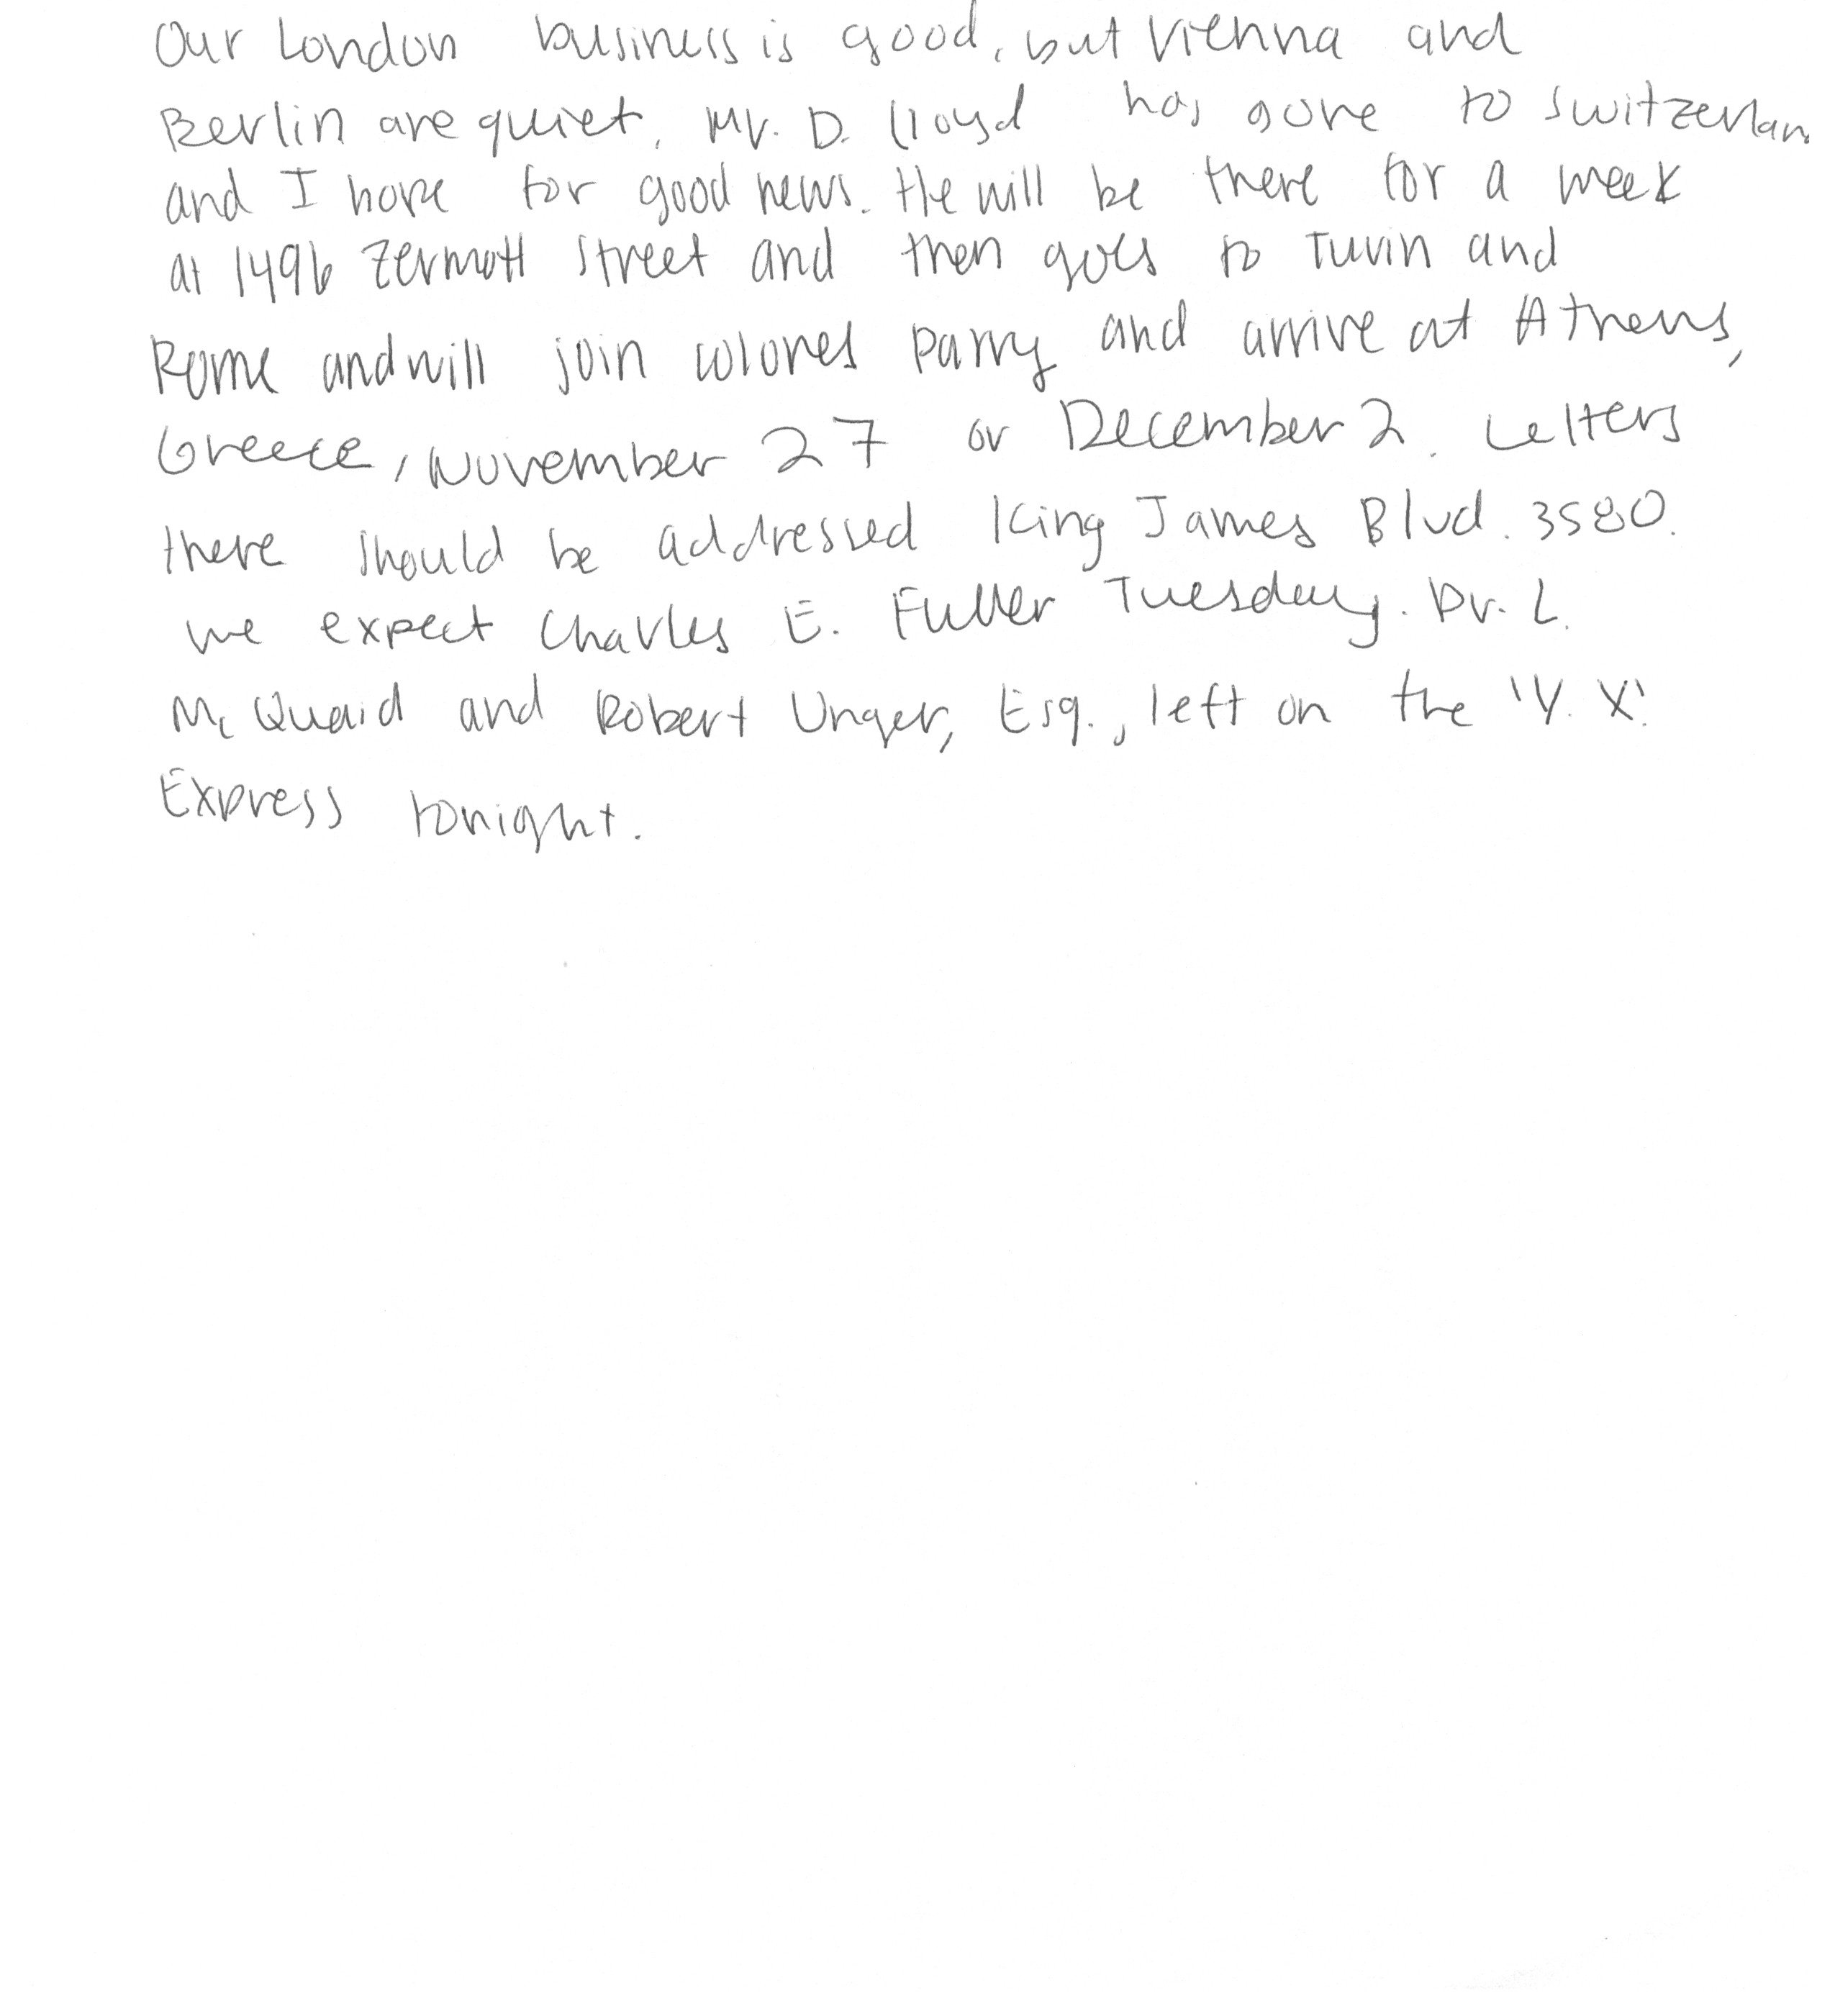 Our London business is good, but Vienna and
Berlin are quiet. Mr. D. Lloyd has gone to Switzerlan
and I hope for good news. He will be there for a week
at 1496 Zermott Street and then goes to Turin and
Rome and will join Colonel Parry and arrive at Athens,
Greece, November 27 or December 2. Letters
there should be addressed King James Blvd. 3580.
We expect Charles E. Fuller Tuesday. Dr. L.
McQuaid and Robert Unger, Esq., left on the 'Y. X.'
Express tonight.